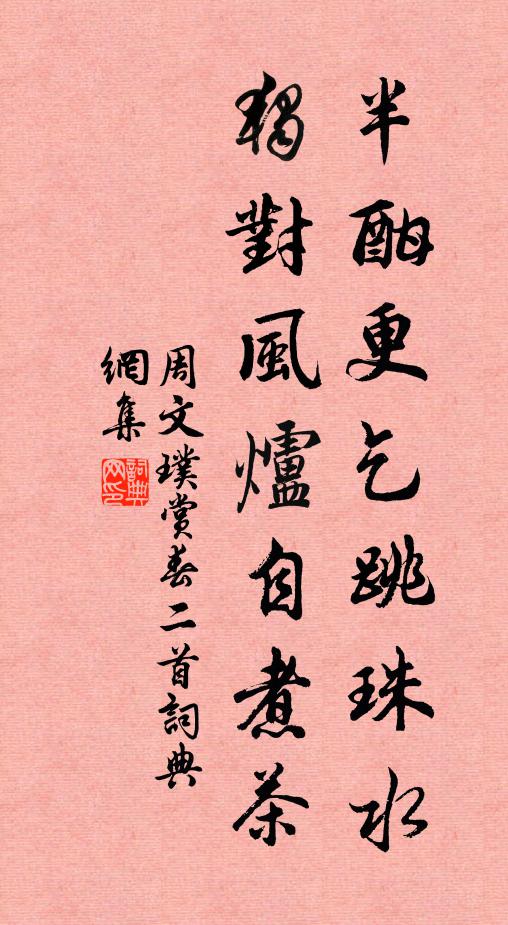 半酣更乞跳珠水
獨對風爐自煮茶
周文璞賞春二首詞典
網集
詞典網印